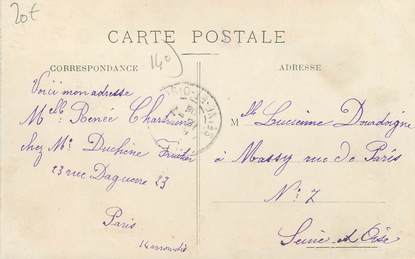 20€
CARTE POSTALE
140
CORRESPONDANCE
ADRESSE
Voici mon adresse
Melle Renée
chez Mr Duchêne fruitier
23 rue Daguerre 23
Paris
14 arrondist
Melle Lucienne Dourdoigne
à Massy rue de Paris
No 7
Seine et Oise